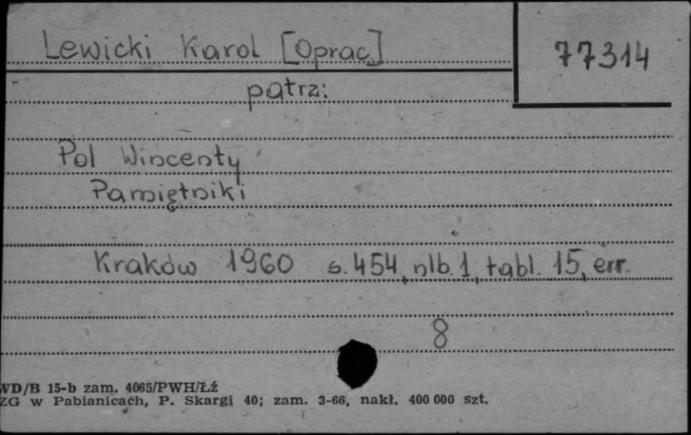 Lewicki Karol [Oprac]
77314
patrz:
Pol Wincenty
Pamiętniki
Kraków 1960 s. 454, nlb. 1, tabl. 15, err.
8
WD/B 15-b zam. 4065/PWH/Łź
ZG w Pabianicach, P. Skargi 40; zam. 3-66, nakł. 400 000 szt.